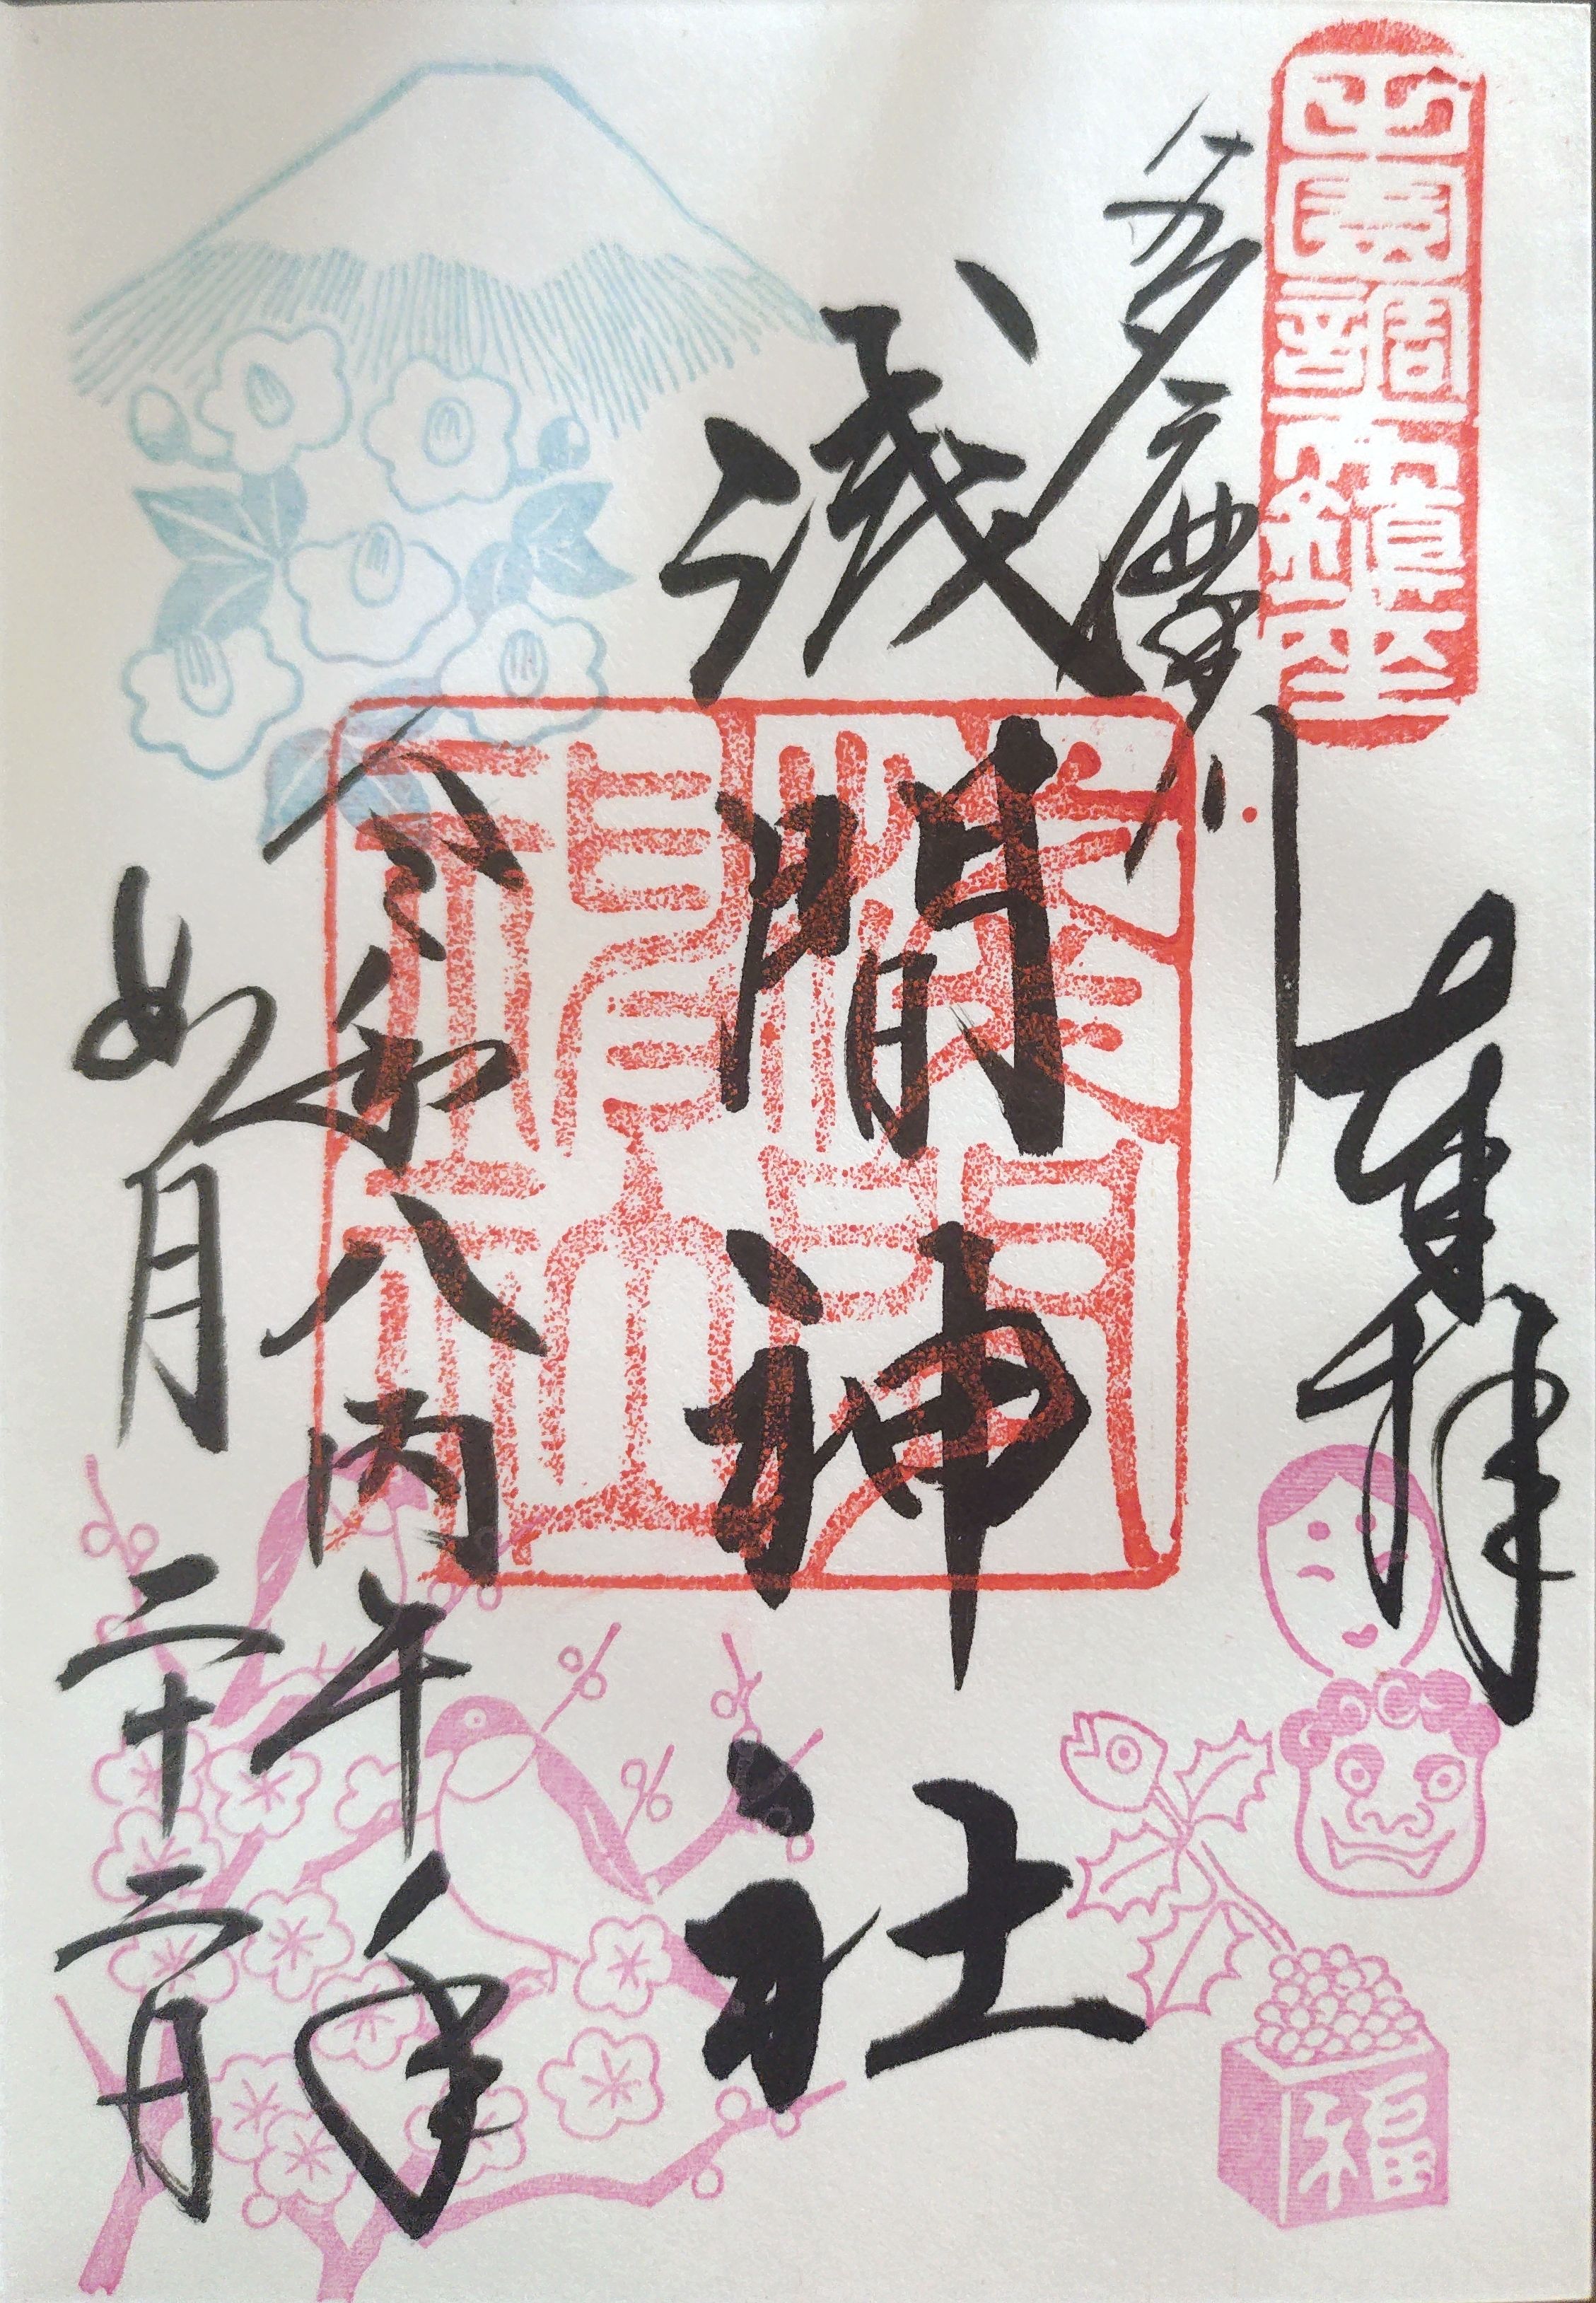 田園調布鎮座
奉拝
多摩川
浅間神社
淺間神社
令和八丙午年
如月二十二日
福